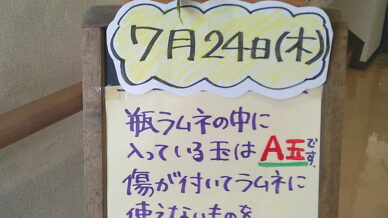 7月24日(木)
瓶ラムネの中に
入っている玉は A玉です。
傷が付いてラムネに
使えないものを